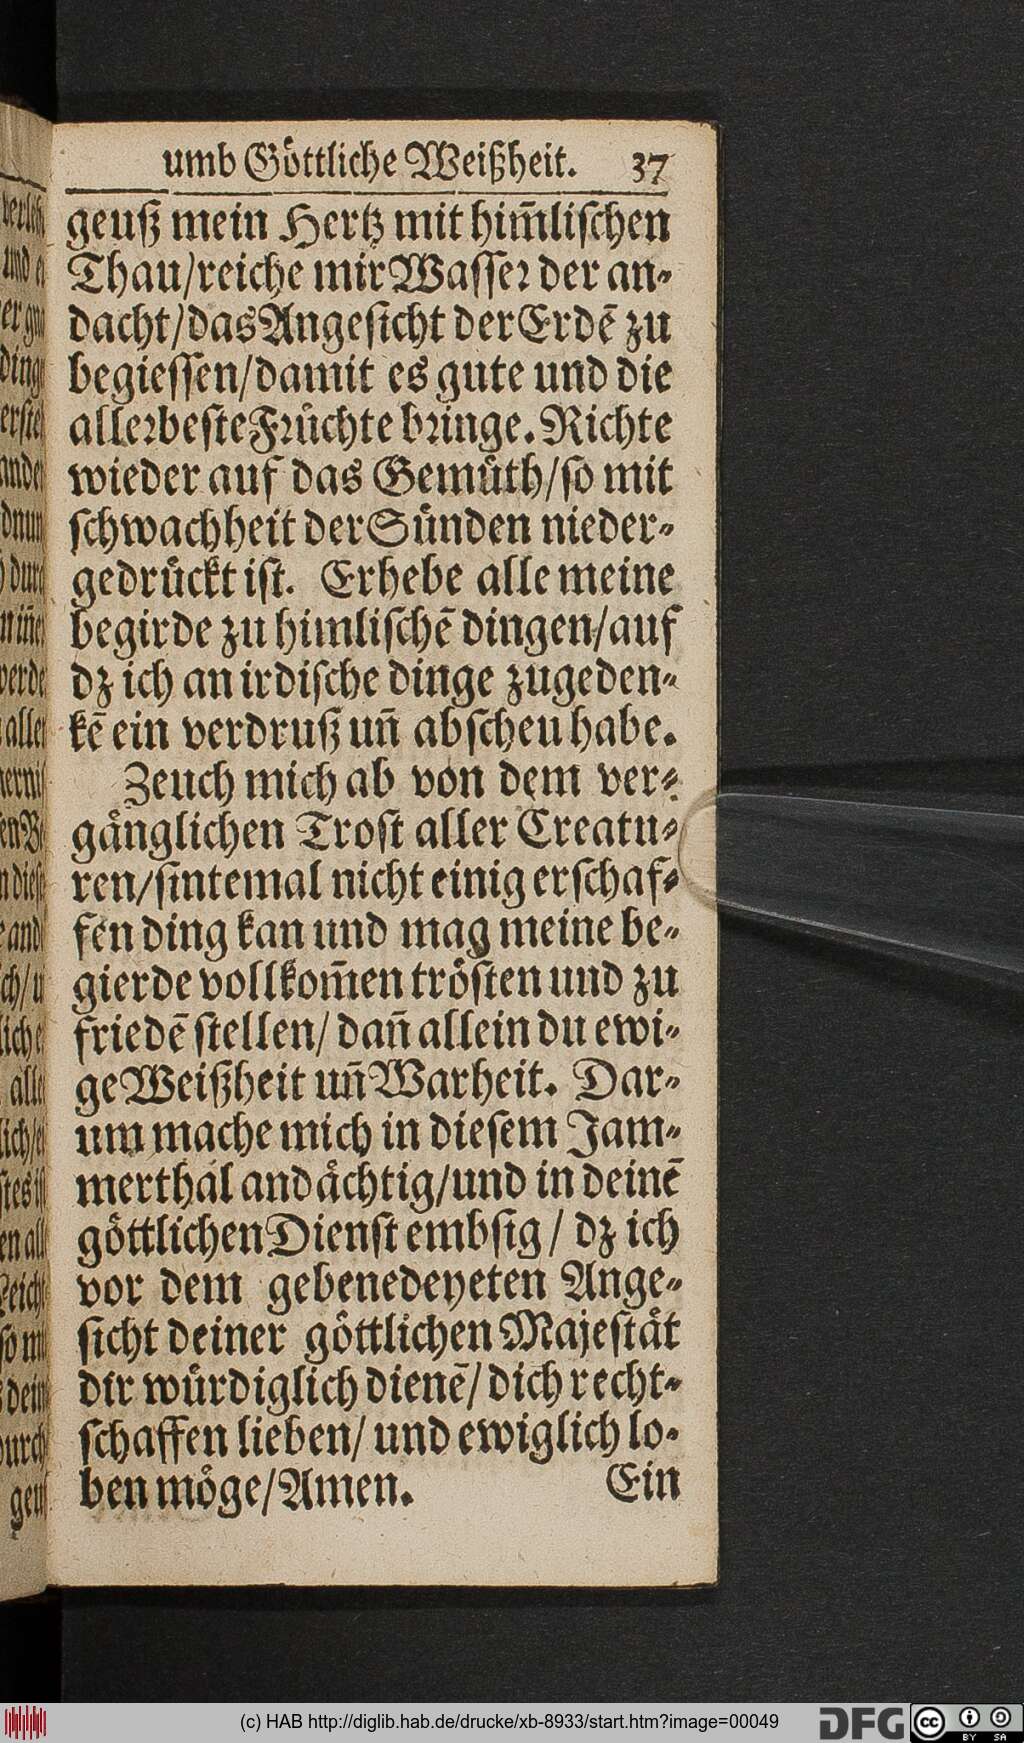 umb Göttliche Weißheit. 37
geuß mein Hertz mit him̃lischen
Thau/reiche mir Wasser der an-
dacht/das Angesicht der Erdē zu
begiessen/damit es gute und die
allerbeste Früchte bringe. Richte
wieder auf das Gemüth/so mit
schwachheit der Sünden nieder-
gedrückt ist. Erhebe alle meine
begirde zu himlischē dingen/auf
dz ich an irdische dinge zugeden-
kē ein verdruß uñ abscheu habe.
Zeuch mich ab von dem ver-
gänglichen Trost aller Creatu-
ren/sintemal nicht einig erschaf-
fen ding kan und mag meine be-
gierde vollkom̃en trösten und zu
friedē stellen/ dañ allein du ewi-
ge Weißheit uñ Warheit. Dar-
um mache mich in diesem Jam-
merthal andächtig/und in deinē
göttlichen Dienst embsig / dz ich
vor dem gebenedeyeten Ange-
sicht deiner göttlichen Majestät
dir würdiglich dienē/ dich recht-
schaffen lieben/ und ewiglich lo-
ben möge/Amen. Ein
(c) HAB http://diglib.hab.de/drucke/xb-8933/start.htm?image=00049
DFG
cc BY SA